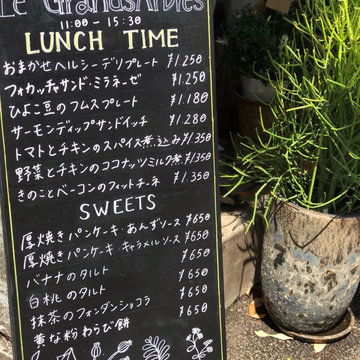 Le GrandsArbres
11:00 - 15:30
LUNCH TIME
おまかせヘルシーデリプレート ¥1.250
フォカッチャサンド・ミラネーゼ ¥1.250
ひよこ豆のフムスプレート ¥1.180
サーモンディップサンドイッチ ¥1.280
トマトとチキンのスパイス煮込み ¥1.350
野菜とチキンのココナッツミルク煮 ¥1.350
きのことベーコンのフィットチーネ ¥1.350
SWEETS
厚焼きパンケーキ・あんずソース ¥650
厚焼きパンケーキ キャラメルソース ¥650
バナナのタルト ¥650
白桃のタルト ¥650
抹茶のフォンダンショコラ ¥650
黄な粉わらび餅 ¥650